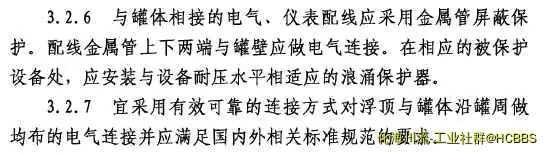 3.2.6 与罐体相接的电气、仪表配线应采用金属管屏蔽保
护。配线金属管上下两端与罐壁应做电气连接。在相应的被保护
设备处，应安装与设备耐压水平相适应的浪涌保护器。
3.2.7 宜采用有效可靠的连接方式对浮顶与罐体沿罐周做
均布的电气连接并应满足国内外相关标准规范的要求。
工业社群@HCBBS